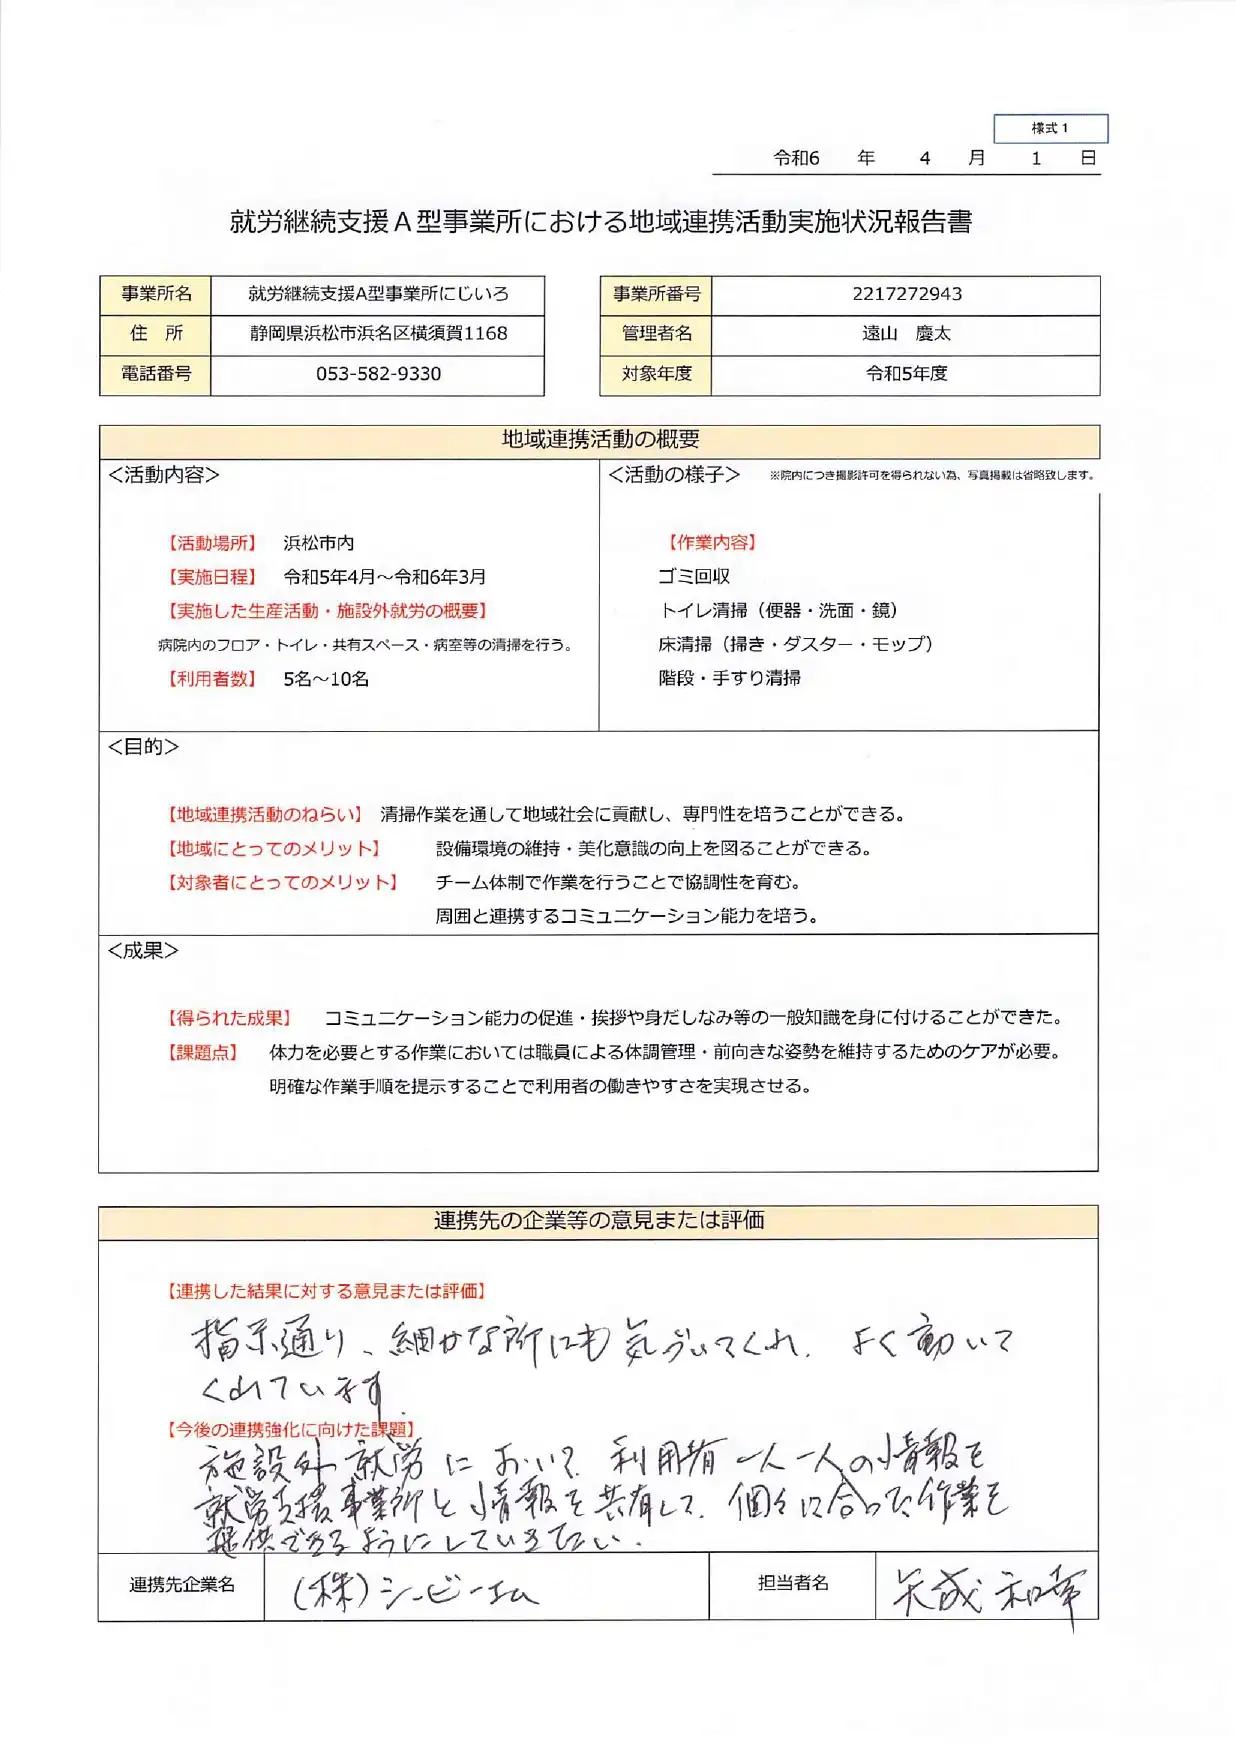 様式1
令和6 年 4 月 1 日
就労継続支援A型事業所における地域連携活動実施状況報告書
事業所名 就労継続支援A型事業所にじいろ 事業所番号 2217272943
住 所 静岡県浜松市浜名区横須賀1168 管理者名 遠山 慶太
電話番号 053-582-9330 対象年度 令和5年度
地域連携活動の概要
<活動内容>
【活動場所】 浜松市内
【実施日程】 令和5年4月～令和6年3月
【実施した生産活動・施設外就労の概要】
病院内のフロア・トイレ・共有スペース・病室等の清掃を行う。
【利用者数】 5名～10名
<活動の様子> ※院内につき撮影許可を得られない為、写真掲載は省略致します。
【作業内容】
ゴミ回収
トイレ清掃（便器・洗面・鏡）
床清掃（掃き・ダスター・モップ）
階段・手すり清掃
<目的>
【地域連携活動のねらい】 清掃作業を通して地域社会に貢献し、専門性を培うことができる。
【地域にとってのメリット】 設備環境の維持・美化意識の向上を図ることができる。
【対象者にとってのメリット】 チーム体制で作業を行うことで協調性を育む。
周囲と連携するコミュニケーション能力を培う。
<成果>
【得られた成果】 コミュニケーション能力の促進・挨拶や身だしなみ等の一般知識を身に付けることができた。
【課題点】 体力を必要とする作業においては職員による体調管理・前向きな姿勢を維持するためのケアが必要。
明確な作業手順を提示することで利用者の働きやすさを実現させる。
連携先の企業等の意見または評価
【連携した結果に対する意見または評価】
指示通り、細かな所にも気づいてくれ、よく動いて
くれています.
【今後の連携強化に向けた課題】
施設外就労において、利用者一人一人の情報を
就労支援事業所と情報を共有して、個々に合った作業を
提供できるようにしていきたい.
連携先企業名 (株)シービーエム 担当者名 和幸